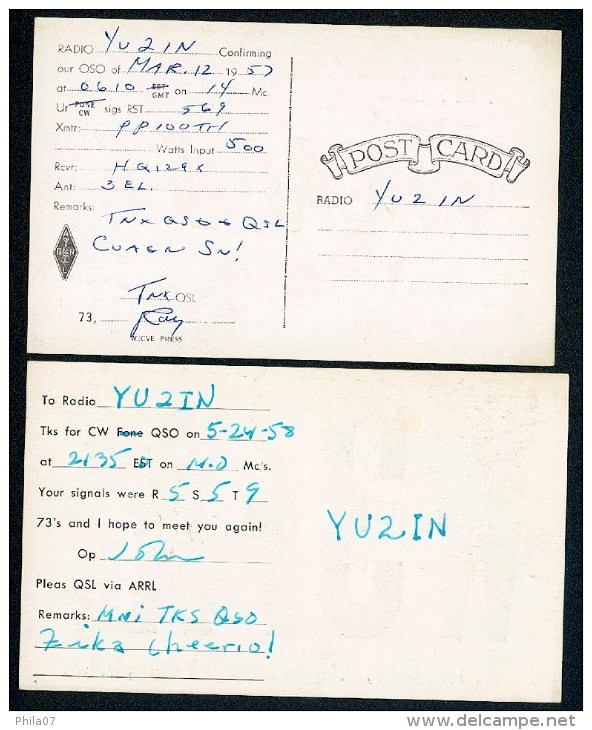 RADIO YU2IN Confirming
our QSO of MAR. 12 1957
at 0610 EST GMT on 14 Mc.
Ur FONE CW sigs RST 569
Xmtr: PP100TH
Watts Input 500
Rcvr: HQ129X
Ant: 3 EL.
Remarks:
TNX QSO QSL
CUAGN SN!
TNX QSL
73, Ray
W2CVE PRESS
POST CARD
RADIO YU2IN
To Radio YU2IN
Tks for CW Fone QSO on 5-24-58
at 2135 EST on 14.0 Mc's.
Your signals were R 5 S 5 T 9
73's and I hope to meet you again!
Op John
Pleas QSL via ARRL
Remarks: Mni TKS QSO
Zika Cheerio!
YU2IN
Phila07
www.delcampe.net